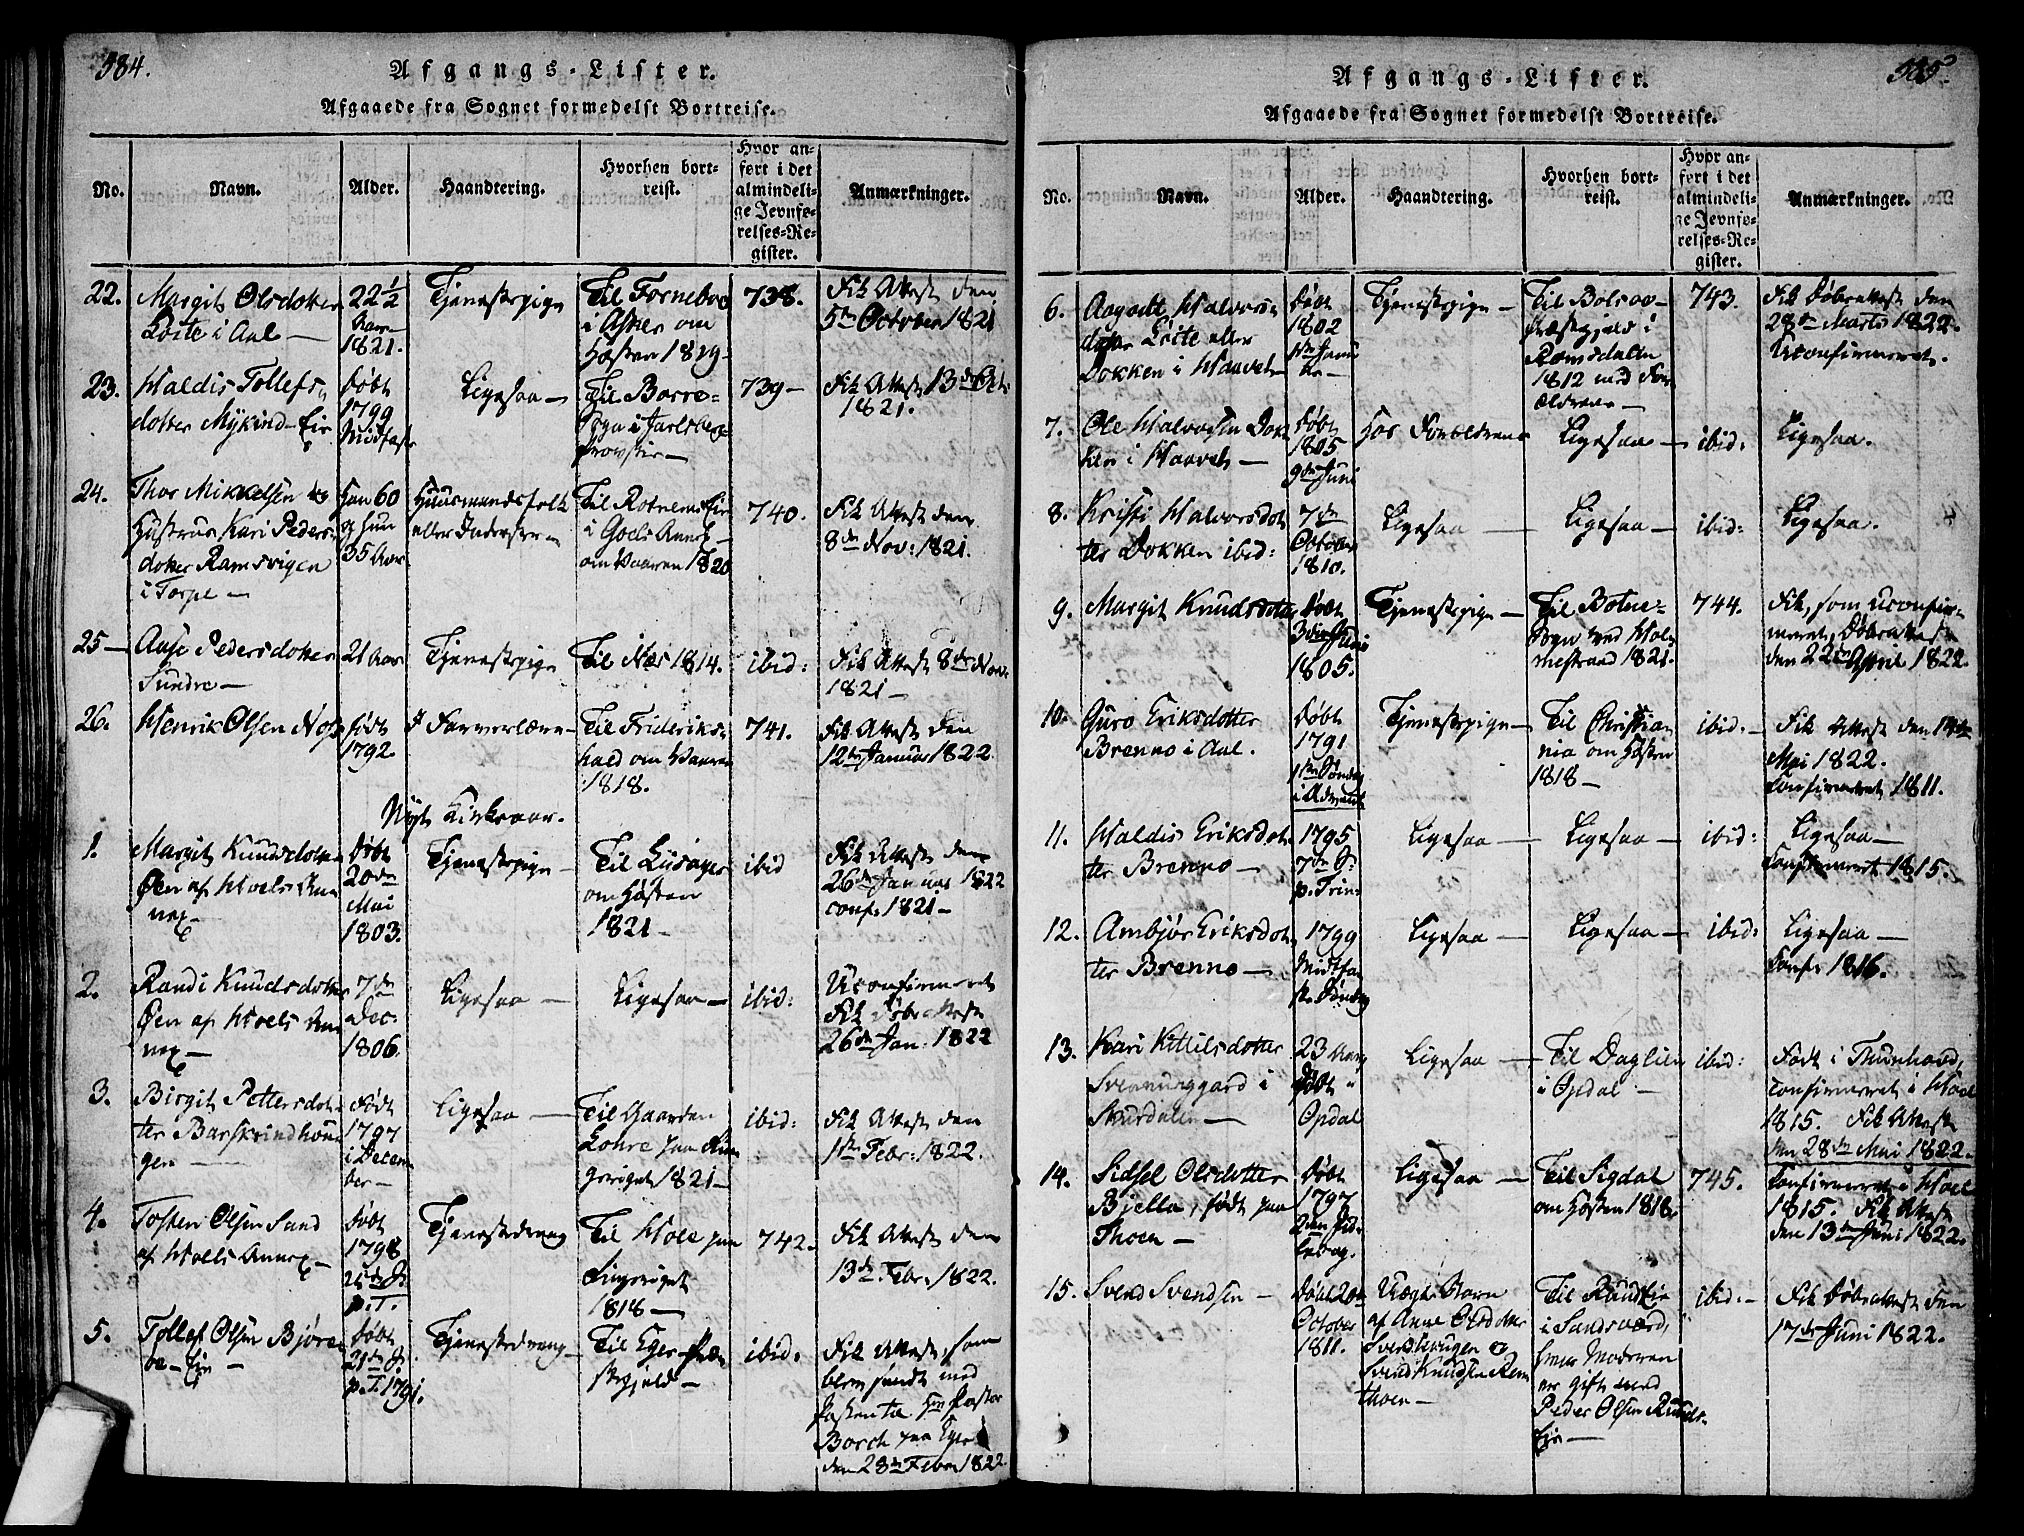 584.
Afgangs-Lister.
Afgaaede fra Sognet formedelst Bortreise.
No.
Navn.
Alder.
Haandtering.
Hvorhen bort-
reist.
Hvor an-
ført i det
almindeli-
ge Jevnfø-
relses-Re-
gister.
Anmærkninger.
22.
Margit Olsdotter
i Aal —
22½
Aar
1821.
Tjenestepige
Til Forneboe
i Asker om
Høsten 1819.
738.
Fik Attest den
5te October 1821
23.
Haldis Tollefs
dotter Mykind-Eie
Døbt
1799
Midfaste
Ligesaa —
Til Borre-
Sogn i Jarlsberg
Provstie —
739 —
Fik Attest 13de Oct.
1821.
24.
Thor Mikkelsen og
Hustrue Kari Peders-
dotter Ramsvigen
i Torpe —
Han 60
og hun
35 Aar
Huusmandsfolk
eller Inderster —
Til Rotnems Eie
i Goels Annex —
om Vaaren 1820
740.
Fik Attest den
8de Nov: 1821.
25 —
Pedersdotter
Sundre —
21 Aar
Tjenestepige
Til Næs 1814.
ibid:
Fik Attest 8de Nov:
1821 —
26.
Henrik Olsen
Født
1792.
I Farverlære —
Til Frideriks-
hald om Vaaren
1818.
741.
Fik Attest den
12te Januar 1822.
Nyt Kirkeaar.
1.
Margit Knudsdotter
Øen af Hoels An-
nex —
Døbt
20de
Mai
1803.
Tjenestepige —
Til
om Høsten
1821 —
ibid
Fik Attest den
26de Januar 1822
conf: 1821 —
2.
Randi Knudsdotter
Øen af Hoels An-
nex —
7de
Dec.
1806.
Ligesaa —
Ligesaa —
ibid:
Uconfirmeret
Fik Døbeattest
26de Jan: 1822
3.
Birgit Pettersdot-
ter Barskrindhou-
gen —
Født
1797
i Decem-
ber —
Ligesaa —
Til Gaarden
Lohre paa Rin-
geriget 1821 —
ibid:
Fik Attest den
1ste Febr: 1822.
4.
Tosten Olsen Sand
af Hoels Annex —
Døbt
1798
p. T.
Tjenestedreng
Til Hole paa
Ringeriget
1818 —
742.
Fik Attest den
13de Febr: 1822.
5.
Tollef Olsen Bjøre-
Eie —
Døbt
21de S.
p. T. 1791.
Tjenestedreng —
Til Eger Præ-
stegjeld —
ibid:
Fik Attest, som
blev sendt med
Posten til Hr Pastor
Borch paa Eger
den 28de Febr: 1822
585.
Afgangs-Lister.
Afgaaede fra Sognet formedelst Bortreise.
No.
Navn.
Alder.
Haandtering.
Hvorhen bort-
reist.
Hvor an-
ført i det
almindeli-
ge Jevnfø-
relses-Re-
gister.
Anmærkninger.
6.
Aagodt Halvors
dotter eller
Dokken i Haavet
Døbt
1802
Tjenestepige —
Til Bolsøe-
Præstegjeld i
Romsdalen
1812 med For-
ældrene —
743.
Fik Døbeattest den
28de Marts 1822.
Uconfirmeret.
7.
Ole Halvorsen Dok-
ken i Haavet —
Døbt
1805
9de Juni
Hos Forældrene
Ligesaa —
ibid:
Ligesaa.
8.
Kristi Halvorsdot-
ter Dokken ibid:
7de
October
1810.
Ligesaa —
Ligesaa —
ibid:
Ligesaa.
9.
Margit Knudsdotter
Døbt
3die Juni
1805.
Tjenestepige —
Til Botne-
Sogn ved Hol-
mestrand 1821.
744.
Fik, som uconfir-
meret, Døbeattest
den 22de April 1822.
10.
Guro Eriksdotter
Brenno i Aal.
Døbt
1791
1ste Søndag
i Advent
Tjenestepige —
Til Christia-
nia om Høsten
1818 —
ibid: —
Fik Attest den 14de
Mai 1822.
Confirmeret 1811.
11.
Haldis Eriksdot-
ter Brenno —
1795
7de S.
p. Trin:
Ligesaa —
Ligesaa —
ibid:
Ligesaa —
Confirmeret 1815.
12.
Ambjør Eriksdot-
ter Brenno —
1799
Midtfa-
ste Søndag
Ligesaa —
Ligesaa —
ibid:
Ligesaa —
Conf: 1816.
13.
Kari Kittilsdotter
i
Skurdalen —
23 Aar
Født i
Opdal
Ligesaa —
Til Daglien
i Opdal —
ibid:
Født i
confirmeret i Hoel
1815. Fik Attest
den 28de Mai 1822.
14.
Sidsel Olsdotter
Bjella, født paa
Thoen —
Døbt
1797
Ligesaa —
Til Sigdal
om Høsten 1818.
745.
Confirmeret i Hoel
1815. Fik Attest
den 13de Juni 1822.
15.
Svend Svendsen —
Døbt 20de
October
1811.
Uægte Barn
af Anne Olsdotter
Svendhougen og
Svend Knudsen
Thoen —
Til Ruud Eie
i Sandsværd,
hvor Moderen
er gift med
Peder Olsen Ruuds-
Eie —
ibid: —
Fik Døbeattest den
17de Juni 1822.